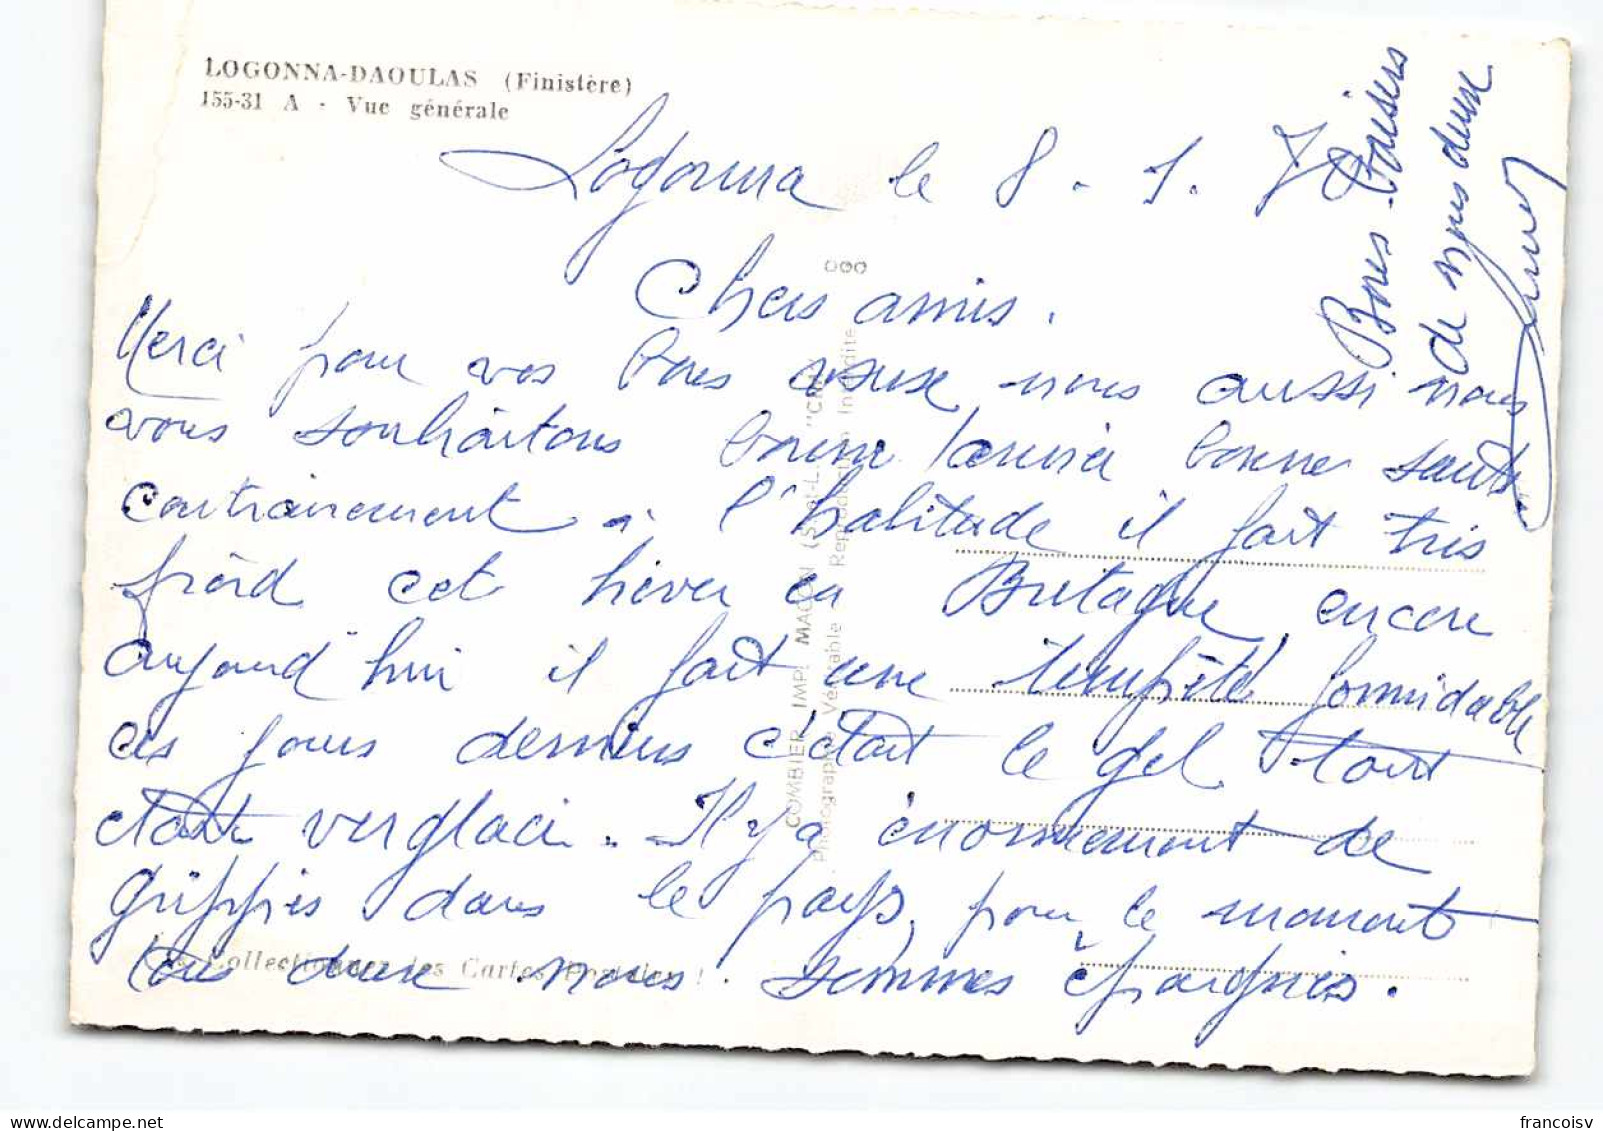 LOGONNA-DAOULAS (Finistère)
155-31 A - Vue générale
Logonna le 8 . 1. 70
Chers amis.
Merci pour vos bons vœux nous aussi nous
vous souhaitons bonne année bonne santé.
contrairement à l'habitude il fait très
froid cet hiver en Bretagne, encore
aujourd'hui il fait une tempête formidable
ces jours derniers c'était le gel tout
était verglacé. Il y a énormément de
grippés dans le pays, pour le moment
tous deux nous sommes épargnés.
Bons Baisers
de nous deux
COMBIER IMP. MACON (S.-et-L.) "CIM"
Photographie Véritable - Reproduction Interdite
Collectionnez les Cartes Postales !
francoisv